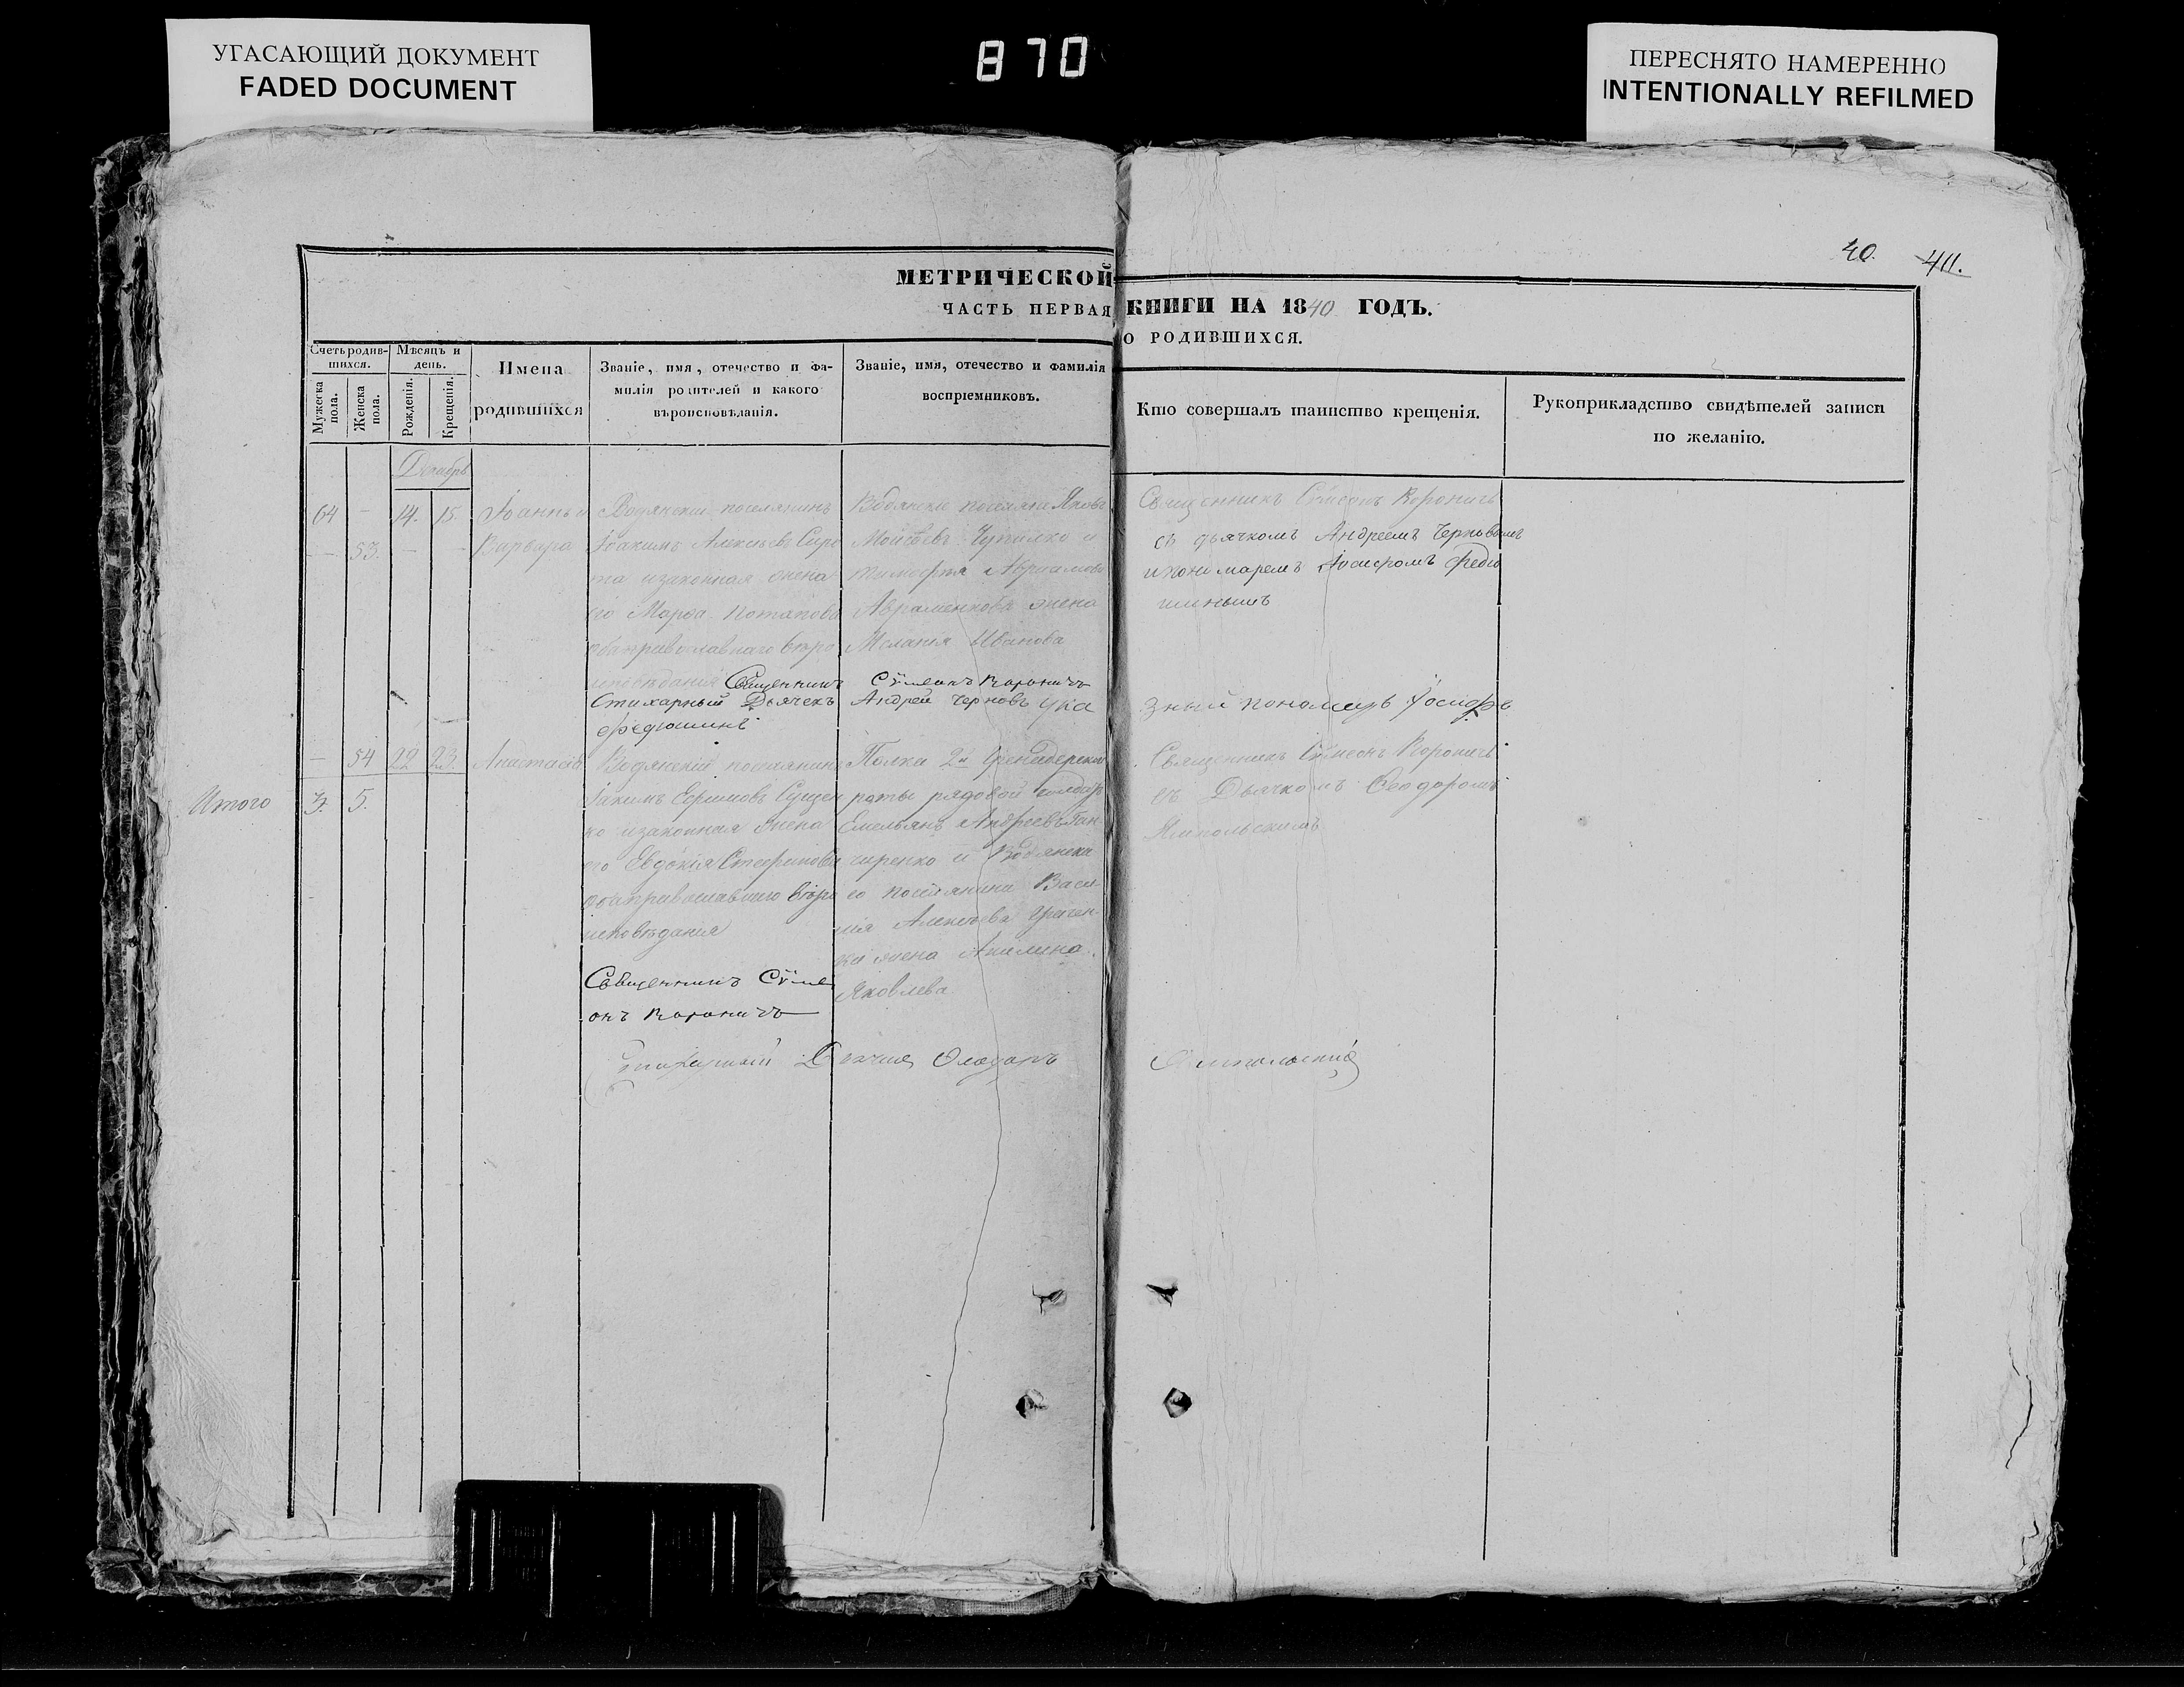 УГАСАЮЩИЙ ДОКУМЕНТ
FADED DOCUMENT
870
ПЕРЕСНЯТО НАМЕРЕННО
INTENTIONALLY REFILMED
40. 411.
МЕТРИЧЕСКОЙ КНИГИ НА 1840 ГОДЪ.
ЧАСТЬ ПЕРВАЯ О РОДИВШИХСЯ.
Счетъ родив-
шихся.
Мужеска
пола.
Женска
пола.
Мѣсяцъ и
день.
Рожденія.
Крещенія.
Имена
родившихся
Званіе, имя, отечество и фа-
милія родителей и какого
вѣроисповѣданія.
Званіе, имя, отечество и фамилія
воспріемниковъ.
Кто совершалъ таинство крещенія.
Рукоприкладство свидѣтелей записи
по желанію.
Декабрь
64 - 14. 15.
- 53. - -
Іоаннъ и
Варвара
Водянскій поселянинъ
Іоакимъ Алексѣевъ Сиро
та изаконная жена
его Марѳа Потапова
оба православнаго вѣро
исповѣданія
Яковъ
Мойсѣевъ и
Авраменкова жена
Меланія Иванова
Священникъ Сѵмеонъ Короничъ
съ дьячкомъ Андреемъ Черновымъ
ипономаремъ Іосифомъ Федю
шинымъ
Священникъ Сѵмеонъ Короничъ
Стихарный Дьячекъ Андрей Черновъ Ука зный пономарь Іосифъ
Федюшинъ
- 54 22 23.
Анастасія
Водянскій поселянинъ
Іакимъ Ефимовъ Сущен
ко изаконная жена
его Евдокія Стефанова
оба православнаго вѣро
исповѣданія
Полка 2й Гренадерской
роты рядовой солдатъ
Емельянъ Андреевъ Ган-
чиренко и Водянска
го поселянина Васи-
лія Алексѣева Гречен-
ка жена Акилина
Яковлева
Священникъ Сѵмеонъ Короничъ
съ Дьячкомъ Ѳеодоромъ
Ямпольскимъ
Итого 3. 5.
Священникъ Сѵме
онъ Короничъ
Стихарный Дьячекъ Ѳеодоръ Ямпольскій